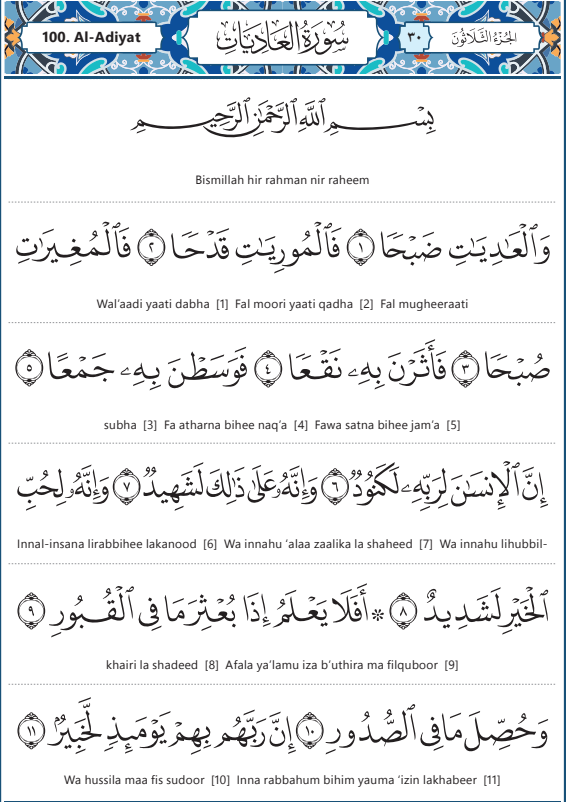 100. Al-Adiyat سُورَةُ العَادِيَاتِ ٣٠ الجُزْءُ الثَّلَاثُونَ
بِسْمِ ٱللَّهِ ٱلرَّحْمَٰنِ ٱلرَّحِيمِ
Bismillah hir rahman nir raheem
وَٱلْعَٰدِيَٰتِ ضَبْحًا ١ فَٱلْمُورِيَٰتِ قَدْحًا ٢ فَٱلْمُغِيرَٰتِ
Wal’aadi yaati dabha [1] Fal moori yaati qadha [2] Fal mugheeraati
صُبْحًا ٣ فَأَثَرْنَ بِهِۦ نَقْعًا ٤ فَوَسَطْنَ بِهِۦ جَمْعًا ٥
subha [3] Fa atharna bihee naq’a [4] Fawa satna bihee jam’a [5]
إِنَّ ٱلْإِنسَٰنَ لِرَبِّهِۦ لَكَنُودٌ ٦ وَإِنَّهُۥ عَلَىٰ ذَٰلِكَ لَشَهِيدٌ ٧ وَإِنَّهُۥ لِحُبِّ
Innal-insana lirabbihee lakanood [6] Wa innahu ‘alaa zaalika la shaheed [7] Wa innahu lihubbil-
ٱلْخَيْرِ لَشَدِيدٌ ٨ ۞ أَفَلَا يَعْلَمُ إِذَا بُعْثِرَ مَا فِى ٱلْقُبُورِ ٩
khairi la shadeed [8] Afala ya’lamu iza b’uthira ma filquboor [9]
وَحُصِّلَ مَا فِى ٱلصُّدُورِ ١٠ إِنَّ رَبَّهُم بِهِمْ يَوْمَئِذٍ لَّخَبِيرٌۢ ١١
Wa hussila maa fis sudoor [10] Inna rabbahum bihim yauma ‘izin lakhabeer [11]